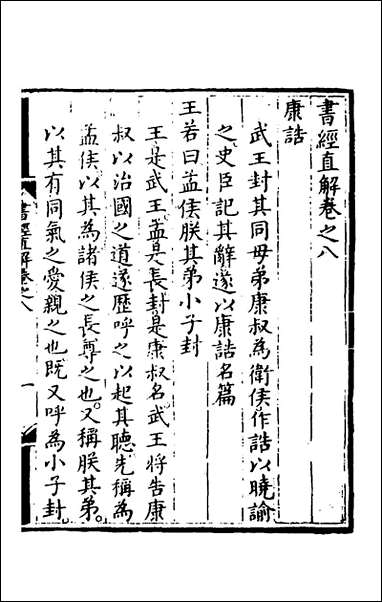 書經直解卷之八
康誥
武王封其同母弟康叔為衛侯作誥以曉諭
之史臣記其辭遂以康誥名篇
王若曰孟侯朕其弟小子封
王是武王孟是長封是康叔名武王將告康
叔以治國之道遂歷呼之以起其聽先稱為
孟侯以其為諸侯之長尊之也又稱朕其弟。
以其有同氣之愛親之也既又呼為小子封。
書經直解卷之八
一